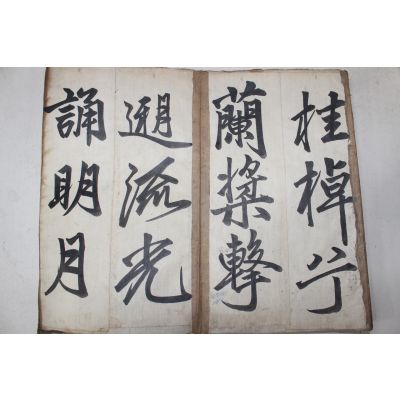 桂棹兮
蘭槳擊
遡流光
誦明月